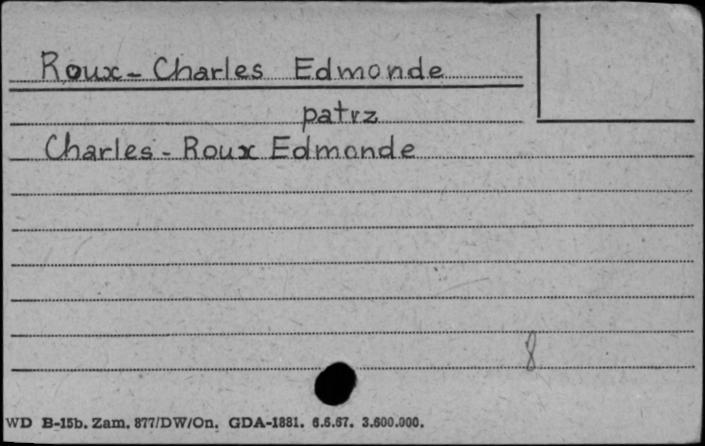 Roux-Charles Edmonde
patrz
Charles-Roux Edmonde
8
WD B-15b. Zam. 877/DW/On. GDA-1881. 6.6.67. 3.600.000.